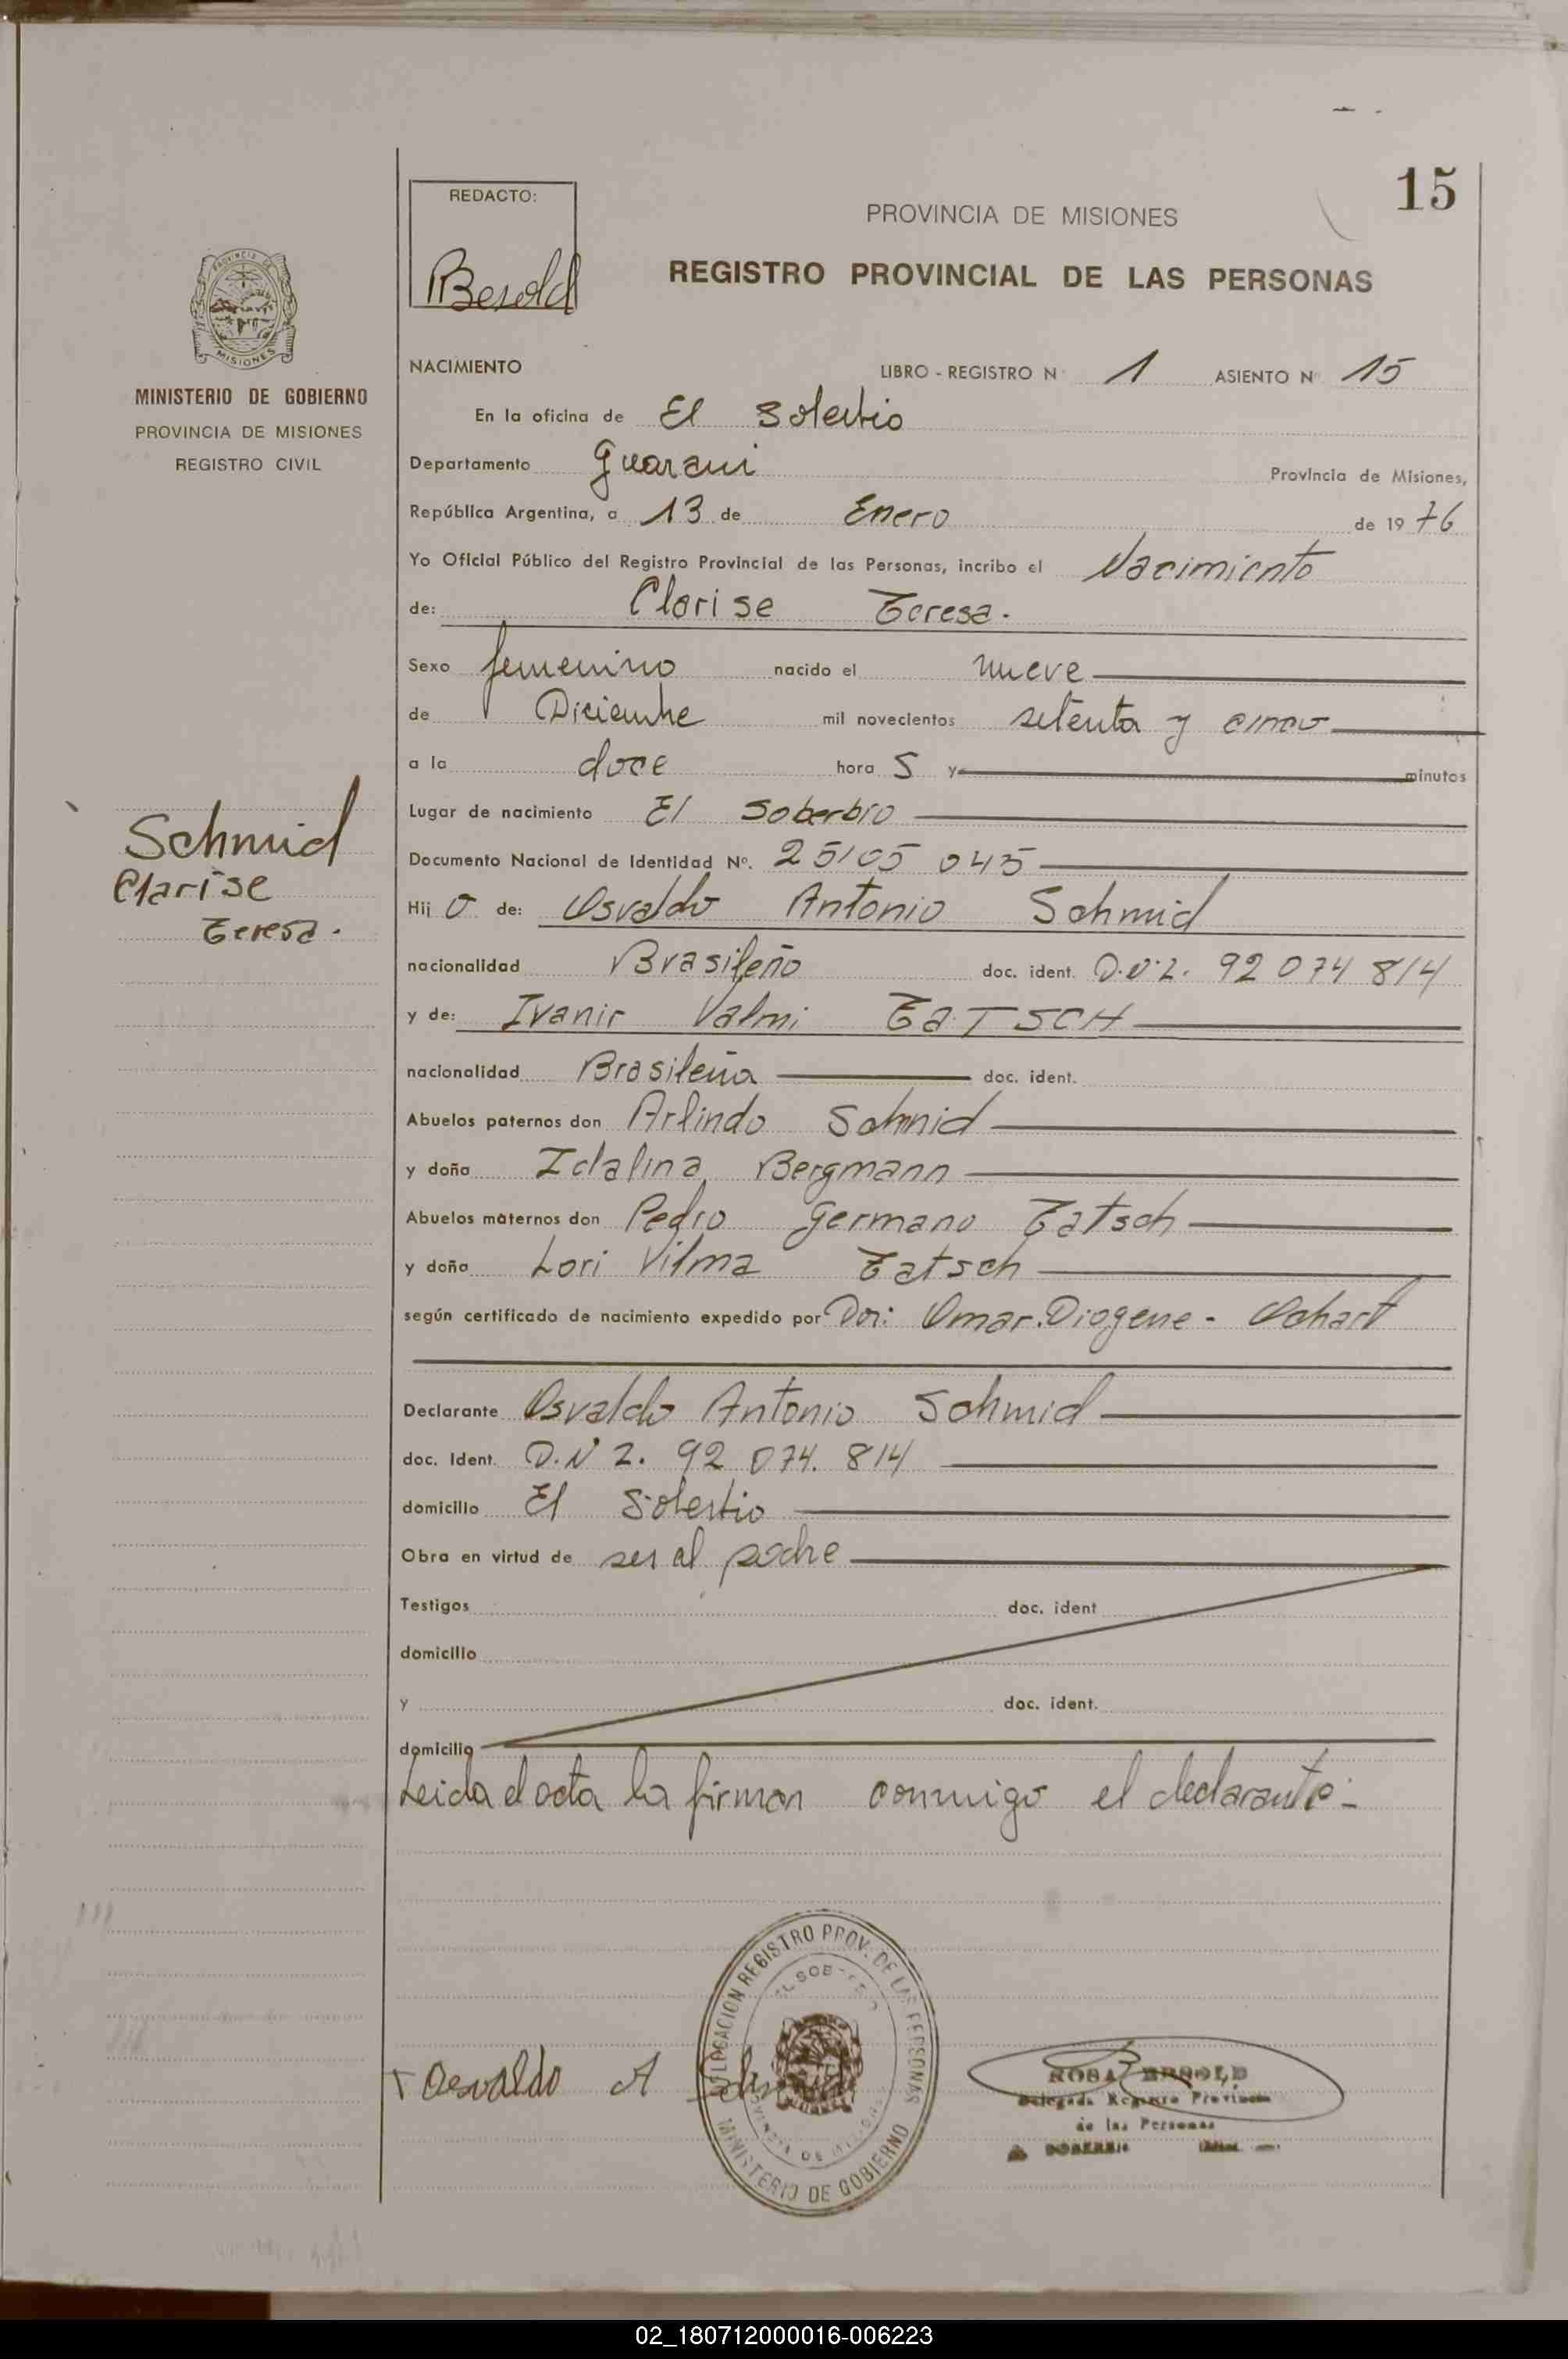 15
REDACTO:
Besold
PROVINCIA DE MISIONES
REGISTRO PROVINCIAL DE LAS PERSONAS
PROVINCIA DE
MISIONES
MINISTERIO DE GOBIERNO
PROVINCIA DE MISIONES
REGISTRO CIVIL
NACIMIENTO LIBRO - REGISTRO N° 1 ASIENTO N° 15
En la oficina de El Soberbio
Departamento Guarani Provincia de Misiones,
República Argentina, a 13 de Enero de 1976
Yo Oficial Público del Registro Provincial de las Personas, incribo el Nacimiento
de: Clarise Teresa.
Sexo femenino nacido el nueve
de Diciembre mil novecientos setenta y cinco
a la doce hora S y minutos
Lugar de nacimiento El Soberbio
Documento Nacional de Identidad N°. 25105 045
Schmid
Clarise
Teresa.
Hij O de: Osvaldo Antonio Schmid
nacionalidad Brasileño doc. ident. D.N.I. 92 074 814
y de: Ivanir Valmi TaTSCH
nacionalidad Brasileña doc. ident.
Abuelos paternos don Arlindo Schmid
y doña Idalina Bergmann
Abuelos maternos don Pedro Germano Tatsch
y doña Lori Vilma Tatsch
según certificado de nacimiento expedido por Dor: Omar. Diogene - Ochart
Declarante Osvaldo Antonio Schmid
doc. Ident. D.N I. 92 074. 814
domicilio El Soberbio
Obra en virtud de ser al padre
Testigos doc. ident
domicilio
y doc. ident.
domicilio
Leida el acta la firman conmigo el declarante.-
DELEGACION REGISTRO PROV. DE LAS PERSONAS
MINISTERIO DE GOBIERNO
Osvaldo A Schmid
ROSA BESOLD
Delegada Registro Provincial
de las Personas
SOBERBIO
02_180712000016-006223